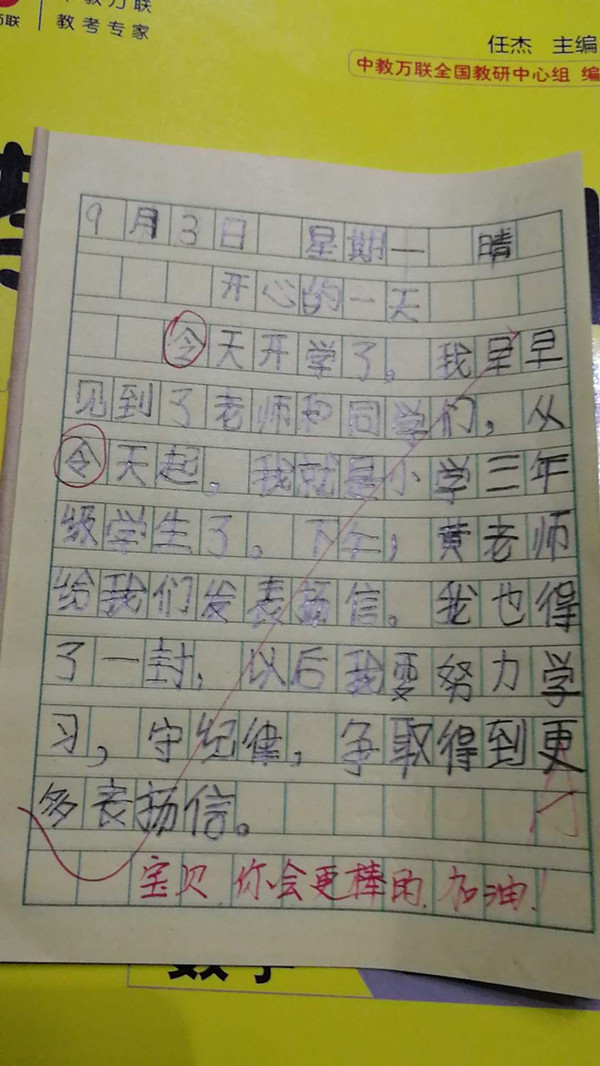 中教万联
教考专家
任杰 主编
中教万联全国教研中心组 编
9月3日 星期一 晴
开心的一天
令天开学了。我早早
见到了老师和同学们,从
令天起,我就是小学三年
级学生了。下午,黄老师
给我们发表扬信。我也得
了一封,以后我要努力学
习,守纪律,争取得到更
多表扬信。
宝贝,你会更棒的,加油!